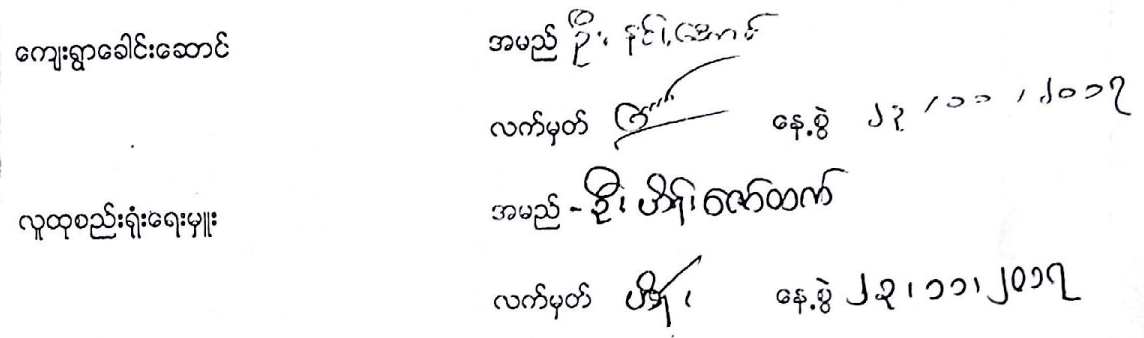 ကျေးရွာခေါင်းဆောင် အမည် ဦး နိုင်အောင်
လက်မှတ် နေ့စွဲ ၂၃/၁၁/၂၀၁၇
လူထုစည်းရုံးရေးမှူး အမည် - ဦး ဟိန်းဇော်ထက်
လက်မှတ် ဟိန်း နေ့စွဲ ၂၃၊၁၁၊၂၀၁၇